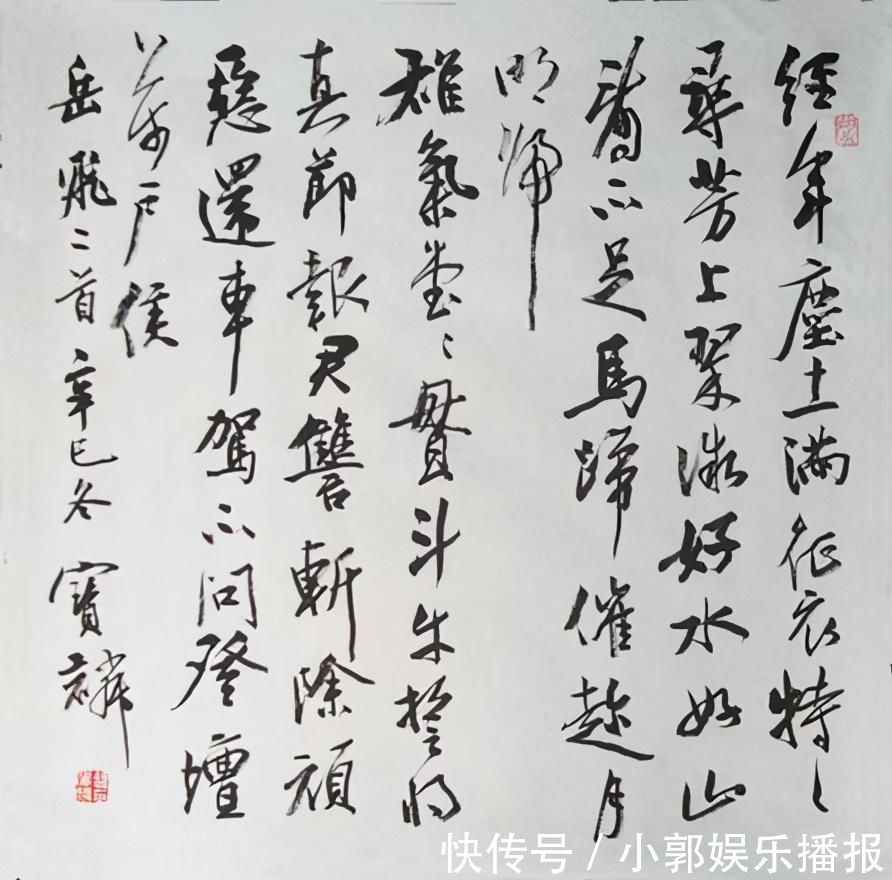 經年塵土滿征衣特〻
尋芳上翠微好水好山
看不足馬蹄催趁月
明歸
雄氣堂〻貫斗牛誓將
真節報君讐斬除頑
惡還車駕不問登壇
萬户侯
岳飛二首辛巳冬寶
快传号 / 小郭娱乐播报